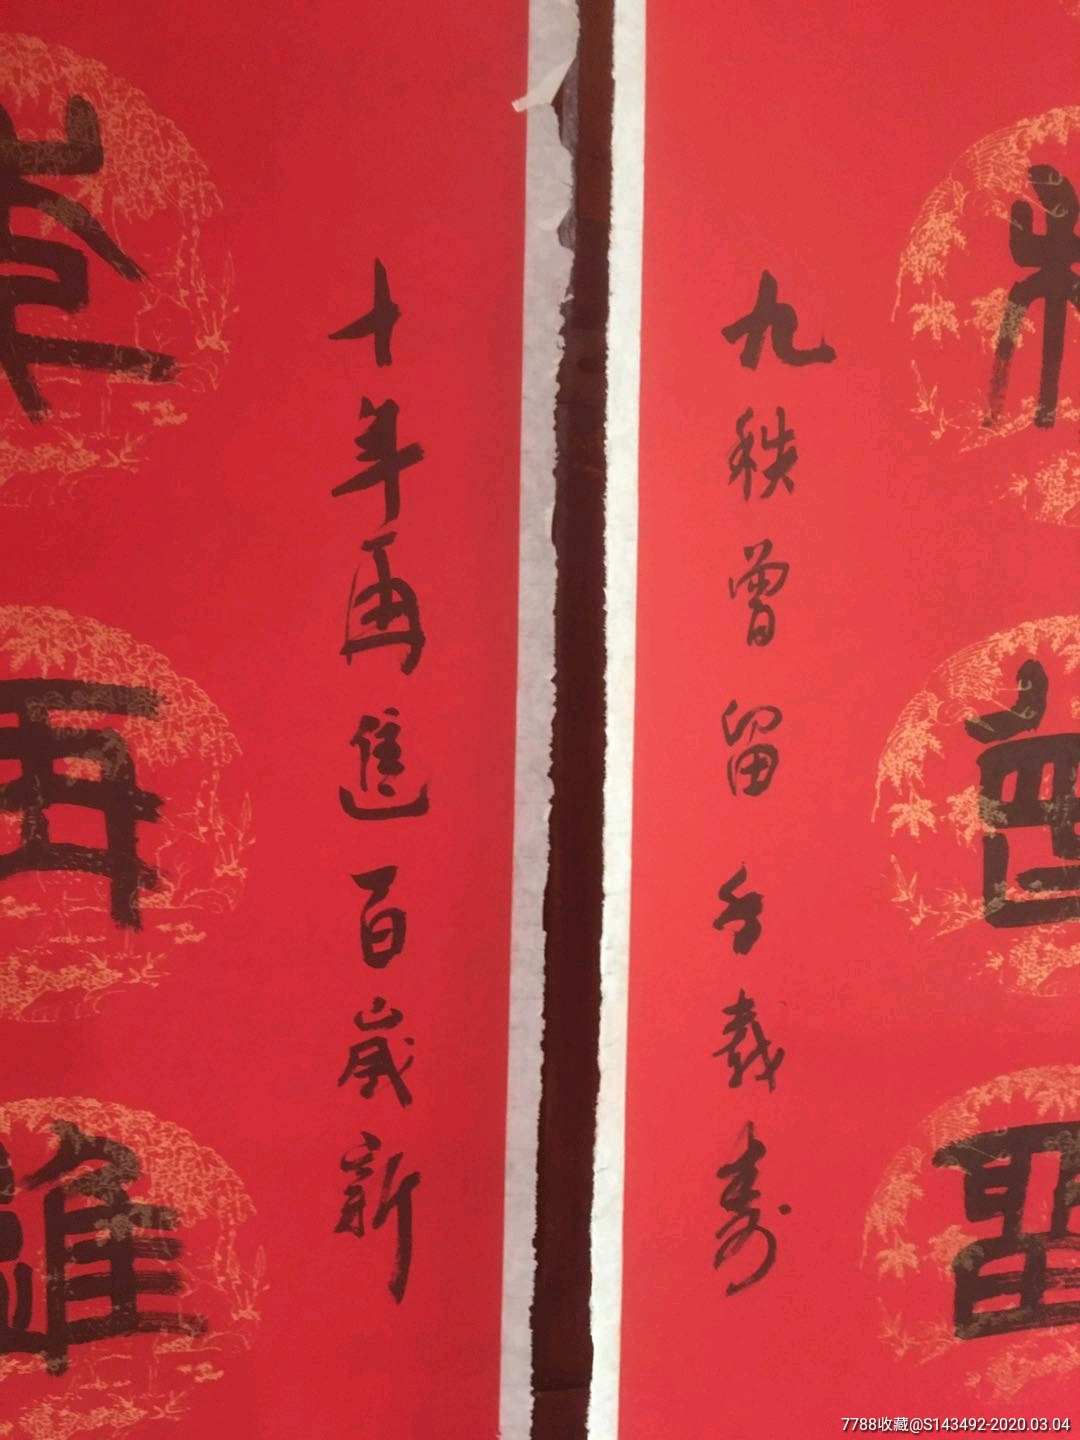 九秩曾留千載壽
十年再進百歲新
7788收藏@S143492-2020.03.04